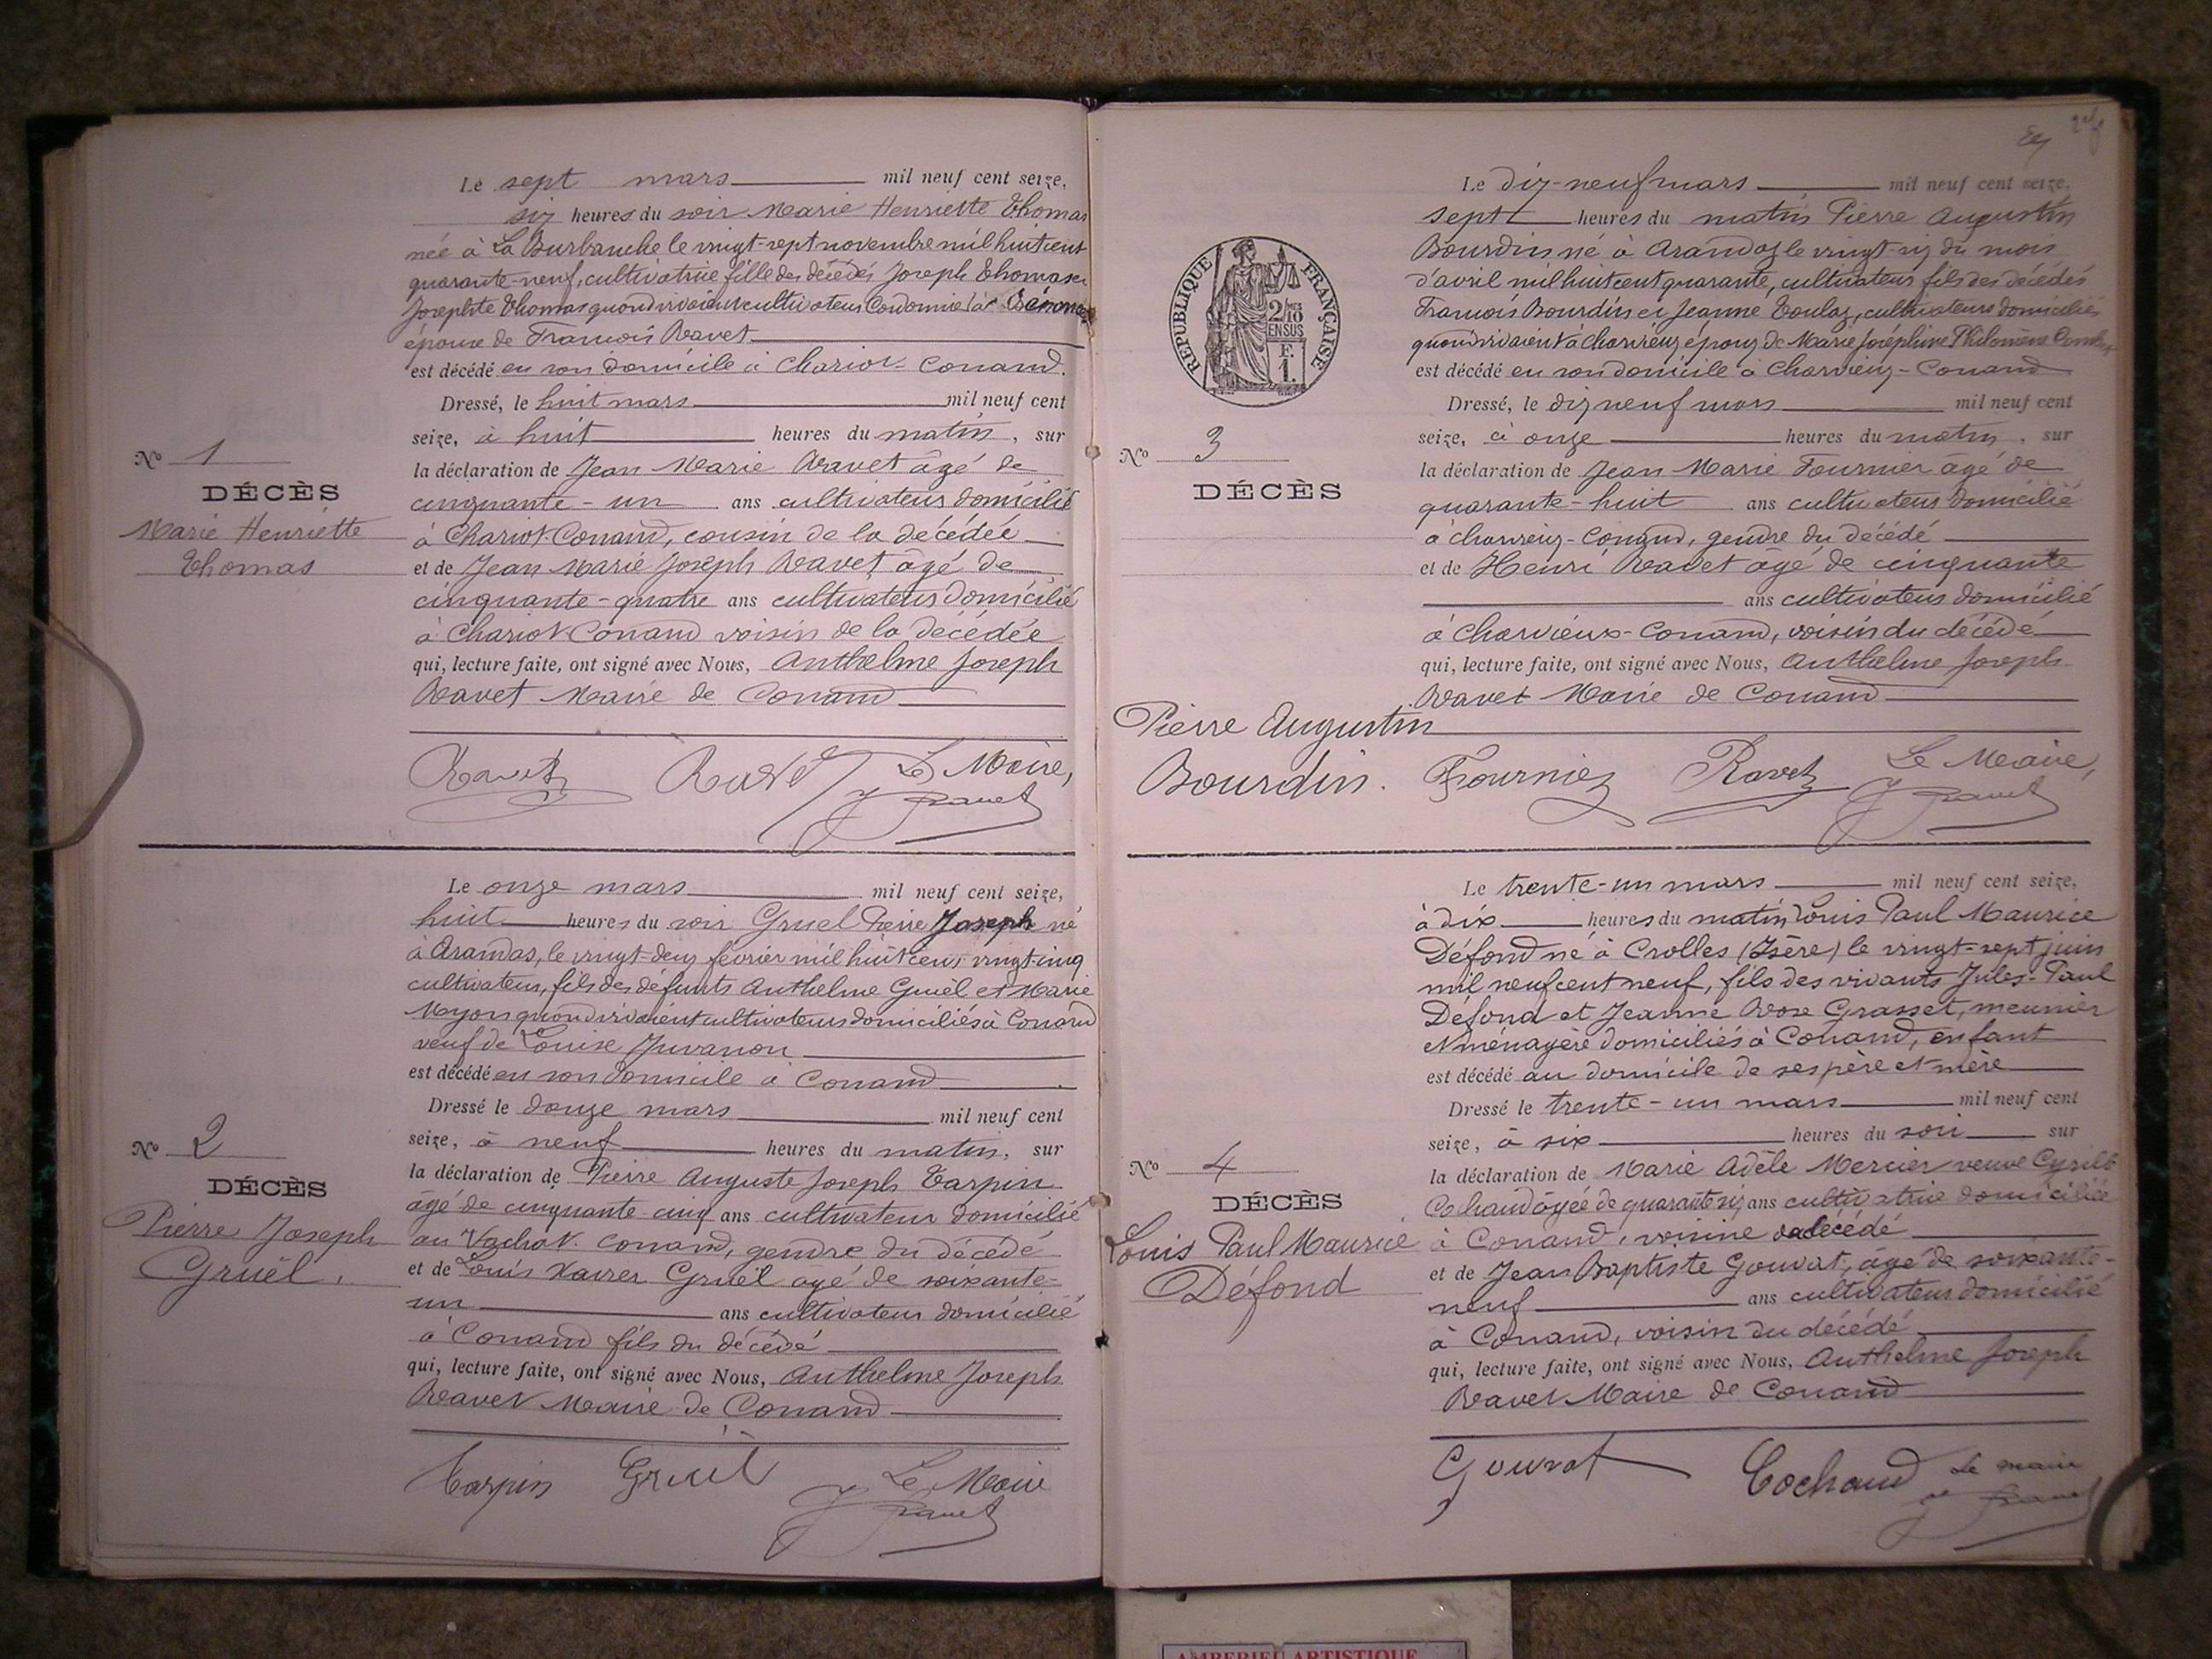 Le sept mars mil neuf cent seize,
six heures du soir Marie Henriette Thomas
née à La Burbanche le vingt-sept novembre mil huit cent
quarante-neuf, cultivatrice fille des décédés Joseph Thomas et
Josephte Thomas quand vivaient cultivateurs
épouse de François Ravet
est décédé en son domicile à Chariot-Conand.
Dressé, le huit mars mil neuf cent
seize, à huit heures du matin, sur
la déclaration de Jean Marie Ravet âgé de
cinquante-un ans cultivateur domicilié
à Chariot-Conand, cousin de la décédée
et de Jean Marie Joseph Ravet âgé de
cinquante-quatre ans cultivateur domicilié
à Chariot Conand voisin de la décédée
qui, lecture faite, ont signé avec Nous, Anthelme Joseph
Ravet Maire de Conand
Nº 1
DÉCÈS
Marie Henriette
Thomas
Ravet Ravet Le Maire,
J Ravet
Le onze mars mil neuf cent seize,
huit heures du soir Gruel Pierre Joseph né
à Arandas, le vingt-deux février mil huit cent vingt-cinq
cultivateur, fils des défunts Anthelme Gruel et Marie
Myon quand vivaient cultivateurs domiciliés à Conand
veuf de Louise Juvanon
est décédé en son domicile à Conand
Dressé le douze mars mil neuf cent
seize, à neuf heures du matin, sur
la déclaration de Pierre Auguste Joseph Tarpin
âgé de cinquante cinq ans cultivateur domicilié
au Vachat. Conand, gendre du décédé
et de Louis Xavier Gruel âgé de soixante-
un ans cultivateur domicilié
à Conand fils du décédé
qui, lecture faite, ont signé avec Nous, Anthelme Joseph
Ravet Maire de Conand
Nº 2
DÉCÈS
Pierre Joseph
Gruël.
Tarpin Gruel Le Maire
J Ravet
Le dix-neuf mars mil neuf cent seize,
sept heures du matin Pierre Augustin
Bourdin né à Arandas le vingt-six du mois
d'avril mil huit cent quarante, cultivateur fils des décédés
François Bourdin et Jeanne Goulaz, cultivateurs domiciliés
quand vivaient à Charvieux époux de Marie Joséphine Philomène
est décédé en son domicile à Charvieux-Conand
Dressé, le dix neuf mars mil neuf cent
seize, à onze heures du matin, sur
la déclaration de Jean Marie Fournier âgé de
quarante-huit ans cultivateur domicilié
à Charvieux-Conand, gendre du décédé
et de Henri Ravet âgé de cinquante
ans cultivateur domicilié
à Charvieux-Conand, voisin du décédé
qui, lecture faite, ont signé avec Nous, Anthelme Joseph
Ravet Maire de Conand
RÉPUBLIQUE FRANÇAISE
2/10 EN SUS
F. 1.
Nº 3
DÉCÈS
Pierre Augustin
Bourdin.
Fournier Ravet Le Maire,
J Ravet
Le trente-un mars mil neuf cent seize,
à dix heures du matin Louis Paul Maurice
Défond né à Crolles (Isère) le vingt-sept juin
mil neuf cent neuf, fils des vivants Jules-Paul
Défond et Jeanne Rose Grasset, meunier
et ménagère domiciliés à Conand, enfant
est décédé au domicile de ses père et mère
Dressé le trente-un mars mil neuf cent
seize, à six heures du soir sur
la déclaration de Marie Adèle Mercier veuve Cyrille
Cochand âgée de quarante six ans cultivatrice domiciliée
à Conand, voisine décédé
et de Jean Baptiste Gouvat, âgé de soixante-
neuf ans cultivateur domicilié
à Conand, voisin du décédé
qui, lecture faite, ont signé avec Nous, Anthelme Joseph
Ravet Maire de Conand
Nº 4
DÉCÈS
Louis Paul Maurice
Défond
Gouvat Cochand Le maire
J Ravet
AMBERIEU ARTISTIQUE